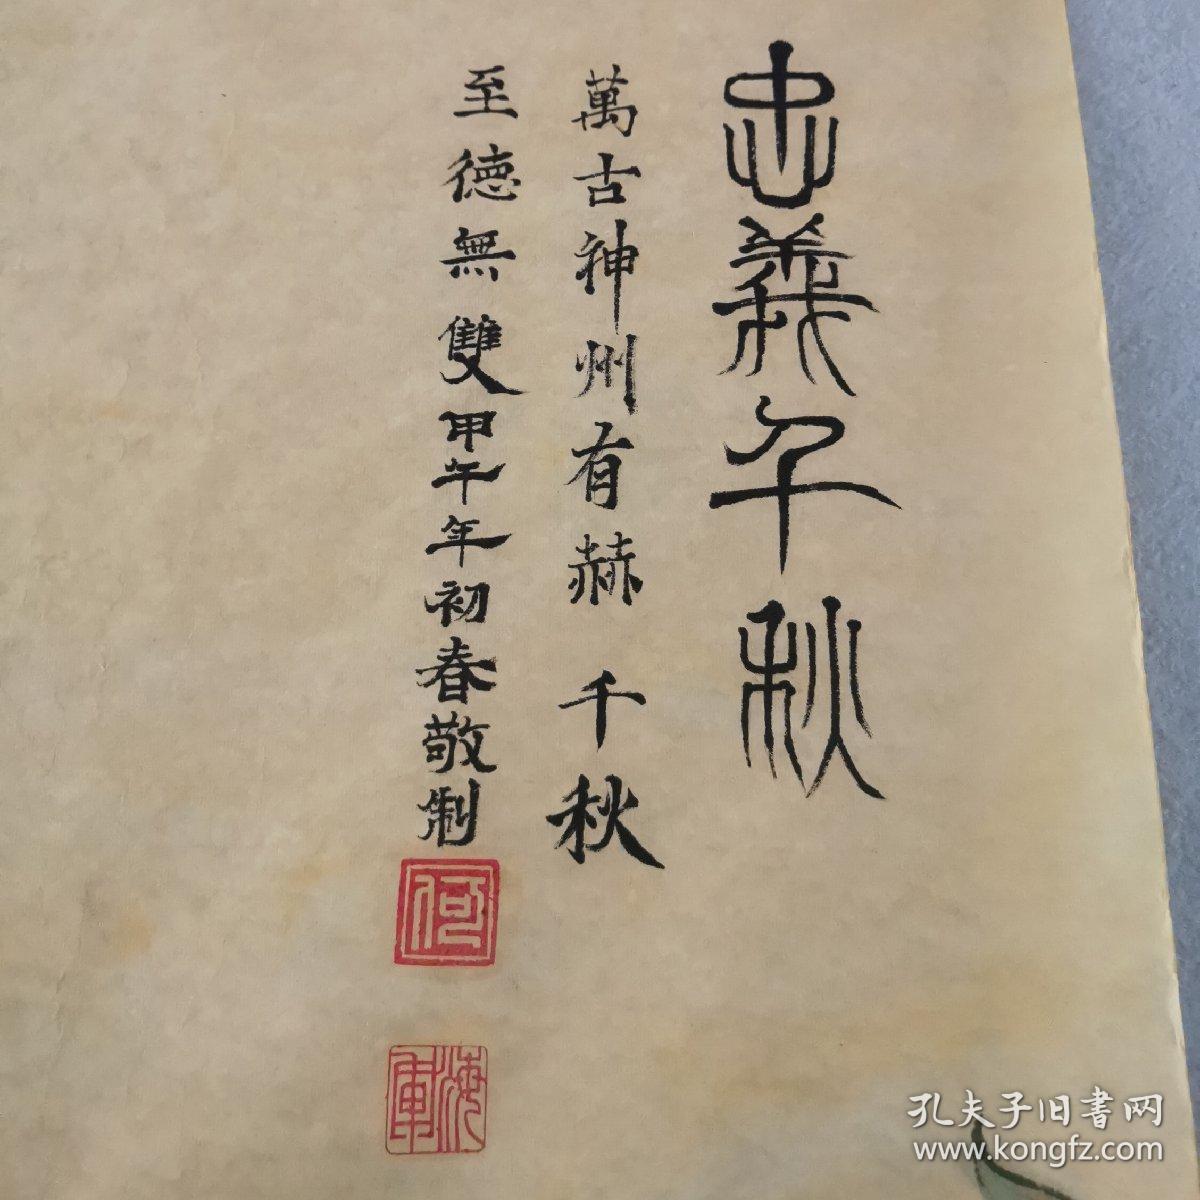 忠義千秋
萬古神州有赫千秋
至德無雙甲午年初春敬制
何
海軍
孔夫子旧書网
www.kongfz.com